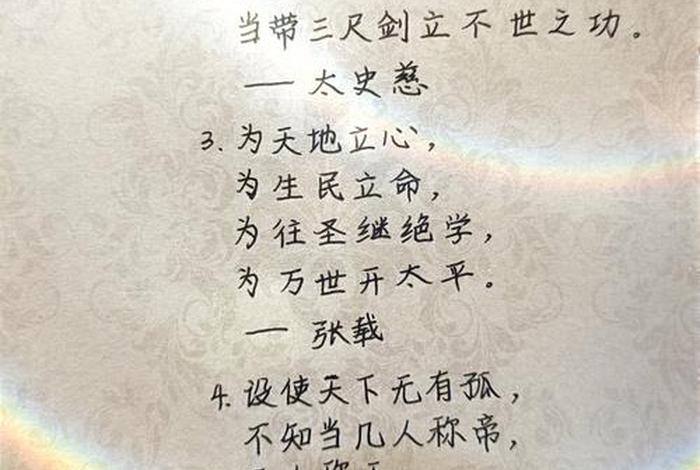 当带三尺剑立不世之功。
— 太史慈
3. 为天地立心，
为生民立命，
为往圣继绝学，
为万世开太平。
— 张载
4. 设使天下无有孤，
不知当几人称帝，